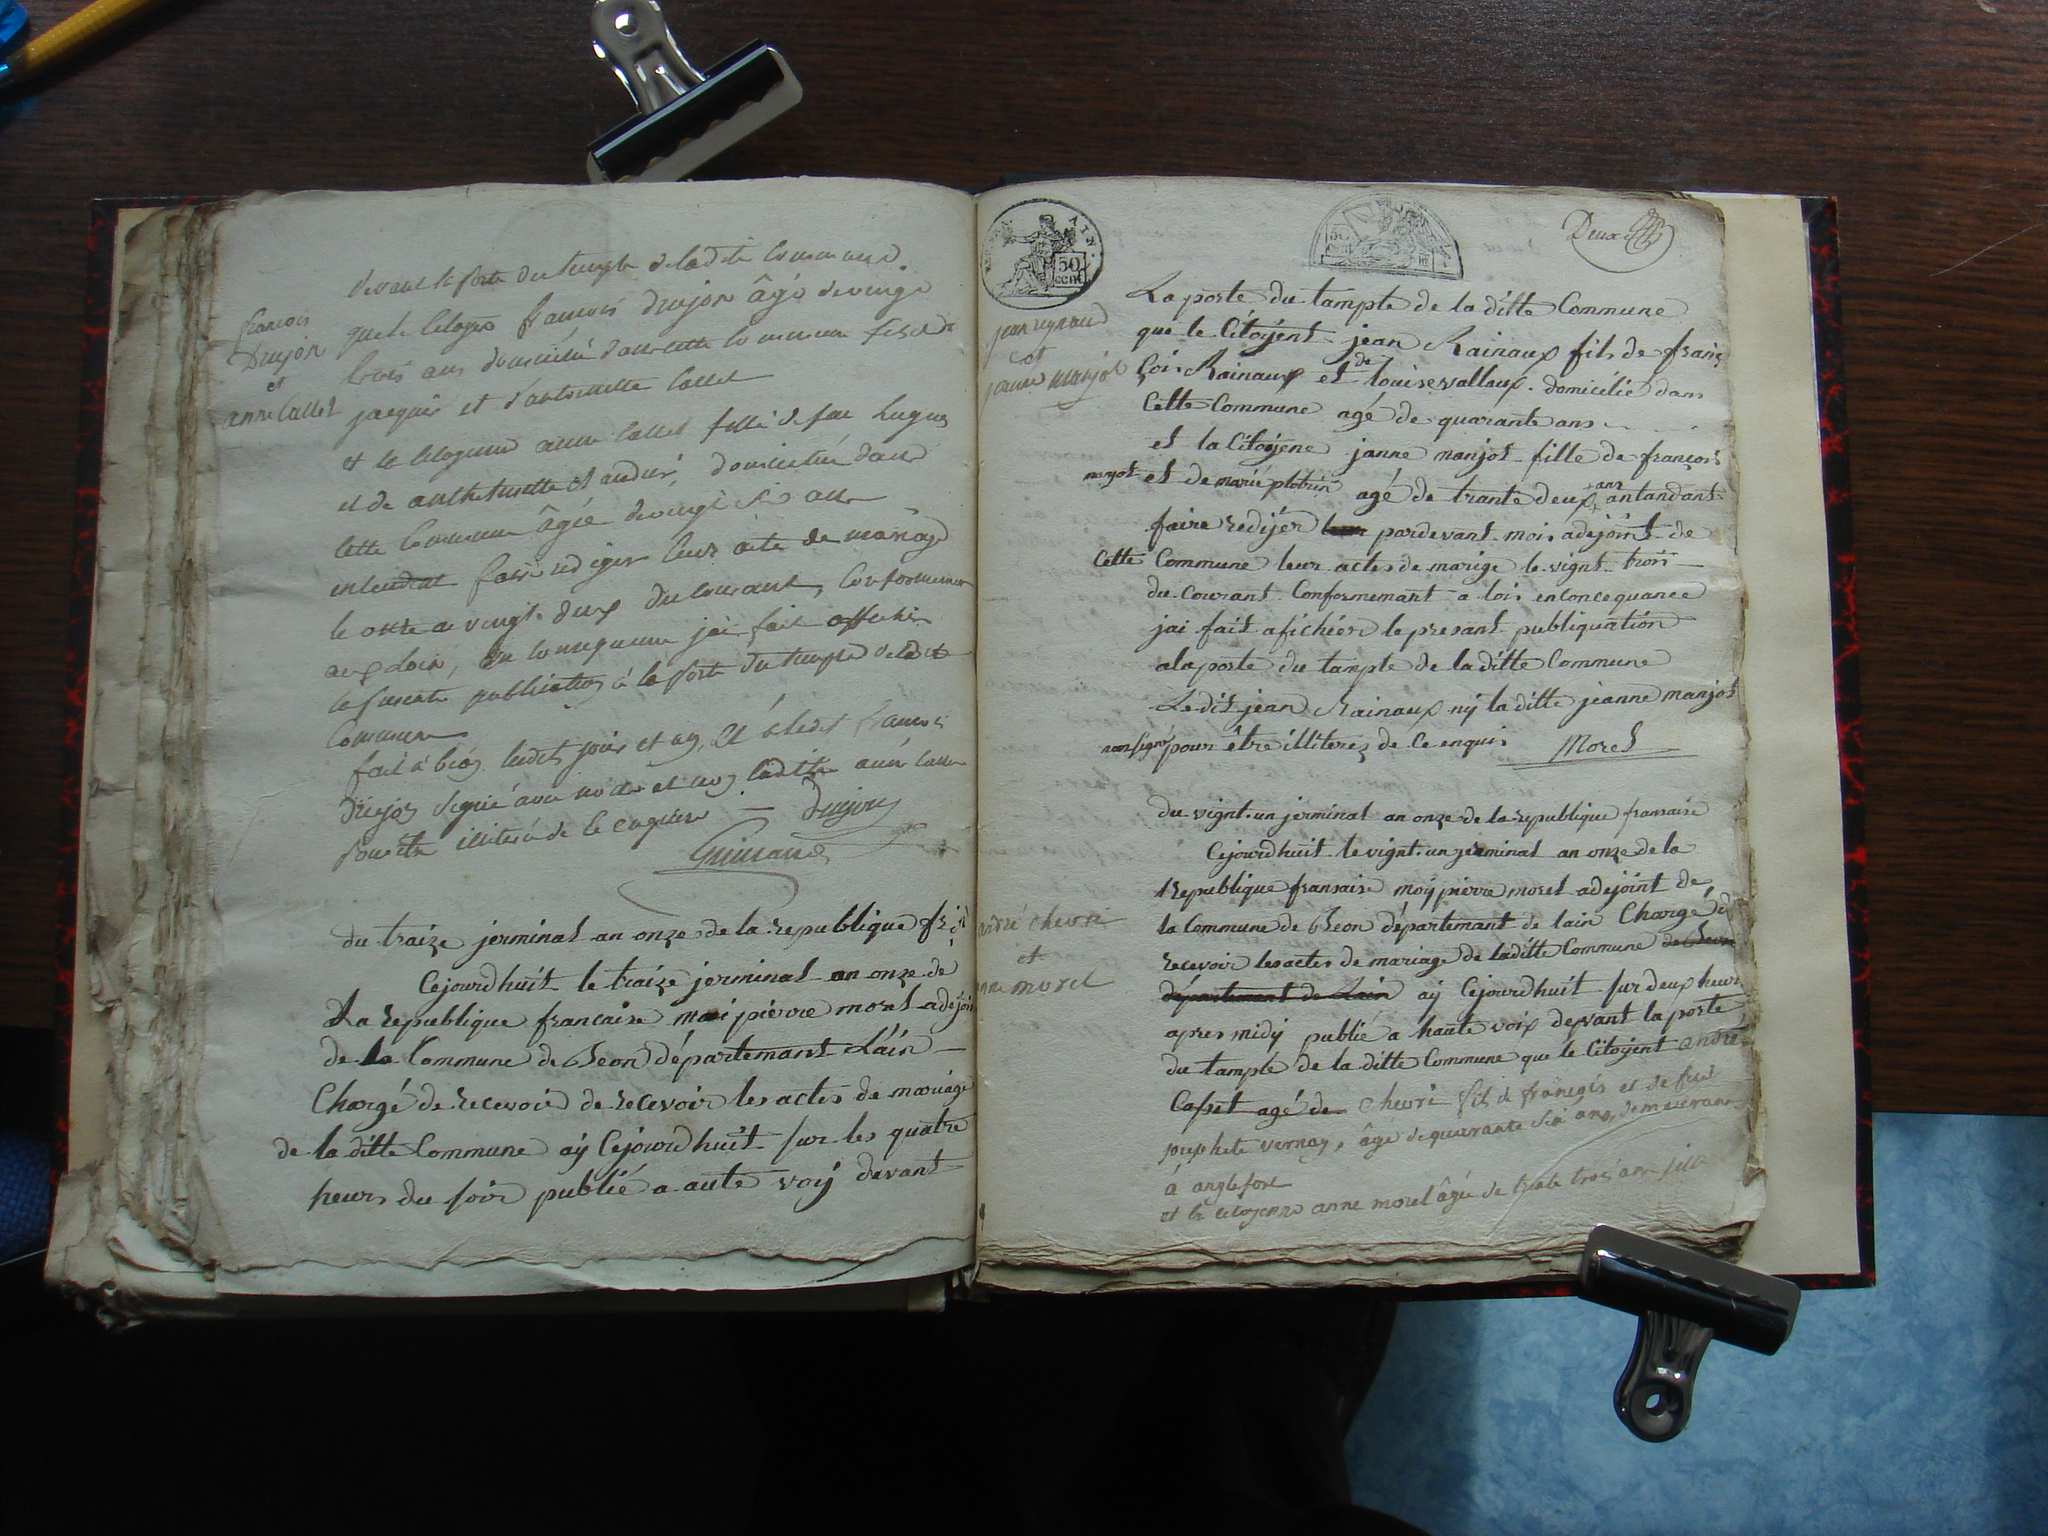 devant la porte du temple de ladite Commune.
françois
Drujon
et
anne Callet
que le Citoyen françois Drujon âgé de vingt
trois ans domicilié dans cette Commune fils de
jacques et d'antoinette Callet
et la Citoyenne anne Callet fille de feu hugues
et de anthelmette andré, domiciliée dans
cette Commune âgée de vingt six ans
entendent faire rediger leur acte de mariage
le onze a vingt deux du Courant, Conformement
aux Loix, en Consequence jai fait afficher
la presente publication à la porte du temple de ladite
Commune
fait à béon ledit jour et an, et a ledit françois
Drujon signé avec nous et non ladite anne Callet
pour etre illiterée de ce enquise — Drujon
du traize jerminal an onze de la republique
Cejourdhuit le traize jerminal an onze de
La republique francaise moi pierre morel adejoint
de la Commune de Beon départemant Lain
Chargé de recevoir de recevoir les actes de mariage
de la ditte Commune aÿ Cejourdhuit sur les quatre
heurs du soir publié a aute voÿ devant
50
cent
Deux
jean reynaud
et
janne manjot
La porte du tample de la ditte Commune
que le Citoÿent jean Rainaux fils de franç
çois Rainaux et de louise vallaux domicilié dans
Cette Commune agé de quarante ans
et la Citoÿene janne manjot fille de françois
manjot et de marie plotrin agé de trante deux ans antandant
faire redijer leur pardevant moi adejoint de
Cette Commune leur actes de marige le vignt troi
du Courant Conformemant a loi enConcequance
jai fait afichéer le presant publiquation
a la porte du tample de la ditte Commune
Le dit jean Rainaux nÿ la ditte jeanne manjot
non signé pour être illiterez de Ce enquis Morel
andré chevri
et
anne morel
du vignt-un jerminal an onze de la republique fransaise
Cejourdhuit le vignt-un jerminal an onze de la
Republique fransaise moÿ pierre morel adejoint de
la Commune de Beon départemant de lain Chargé de
recevoir les actes de mariage de laditte Commune de Beon
départemant de Lain aÿ Cejourdhuit sur deux heurs
apres midÿ publié a haute voix devant la porte
du tample de la ditte Commune que le Citoÿent andré
Casset agé de chevri fils de françois et de feue
josephete vernay, âgé de quarante six ans, demeurant
à anglefort
et la citoyenne anne morel âgée de trente trois ans fille